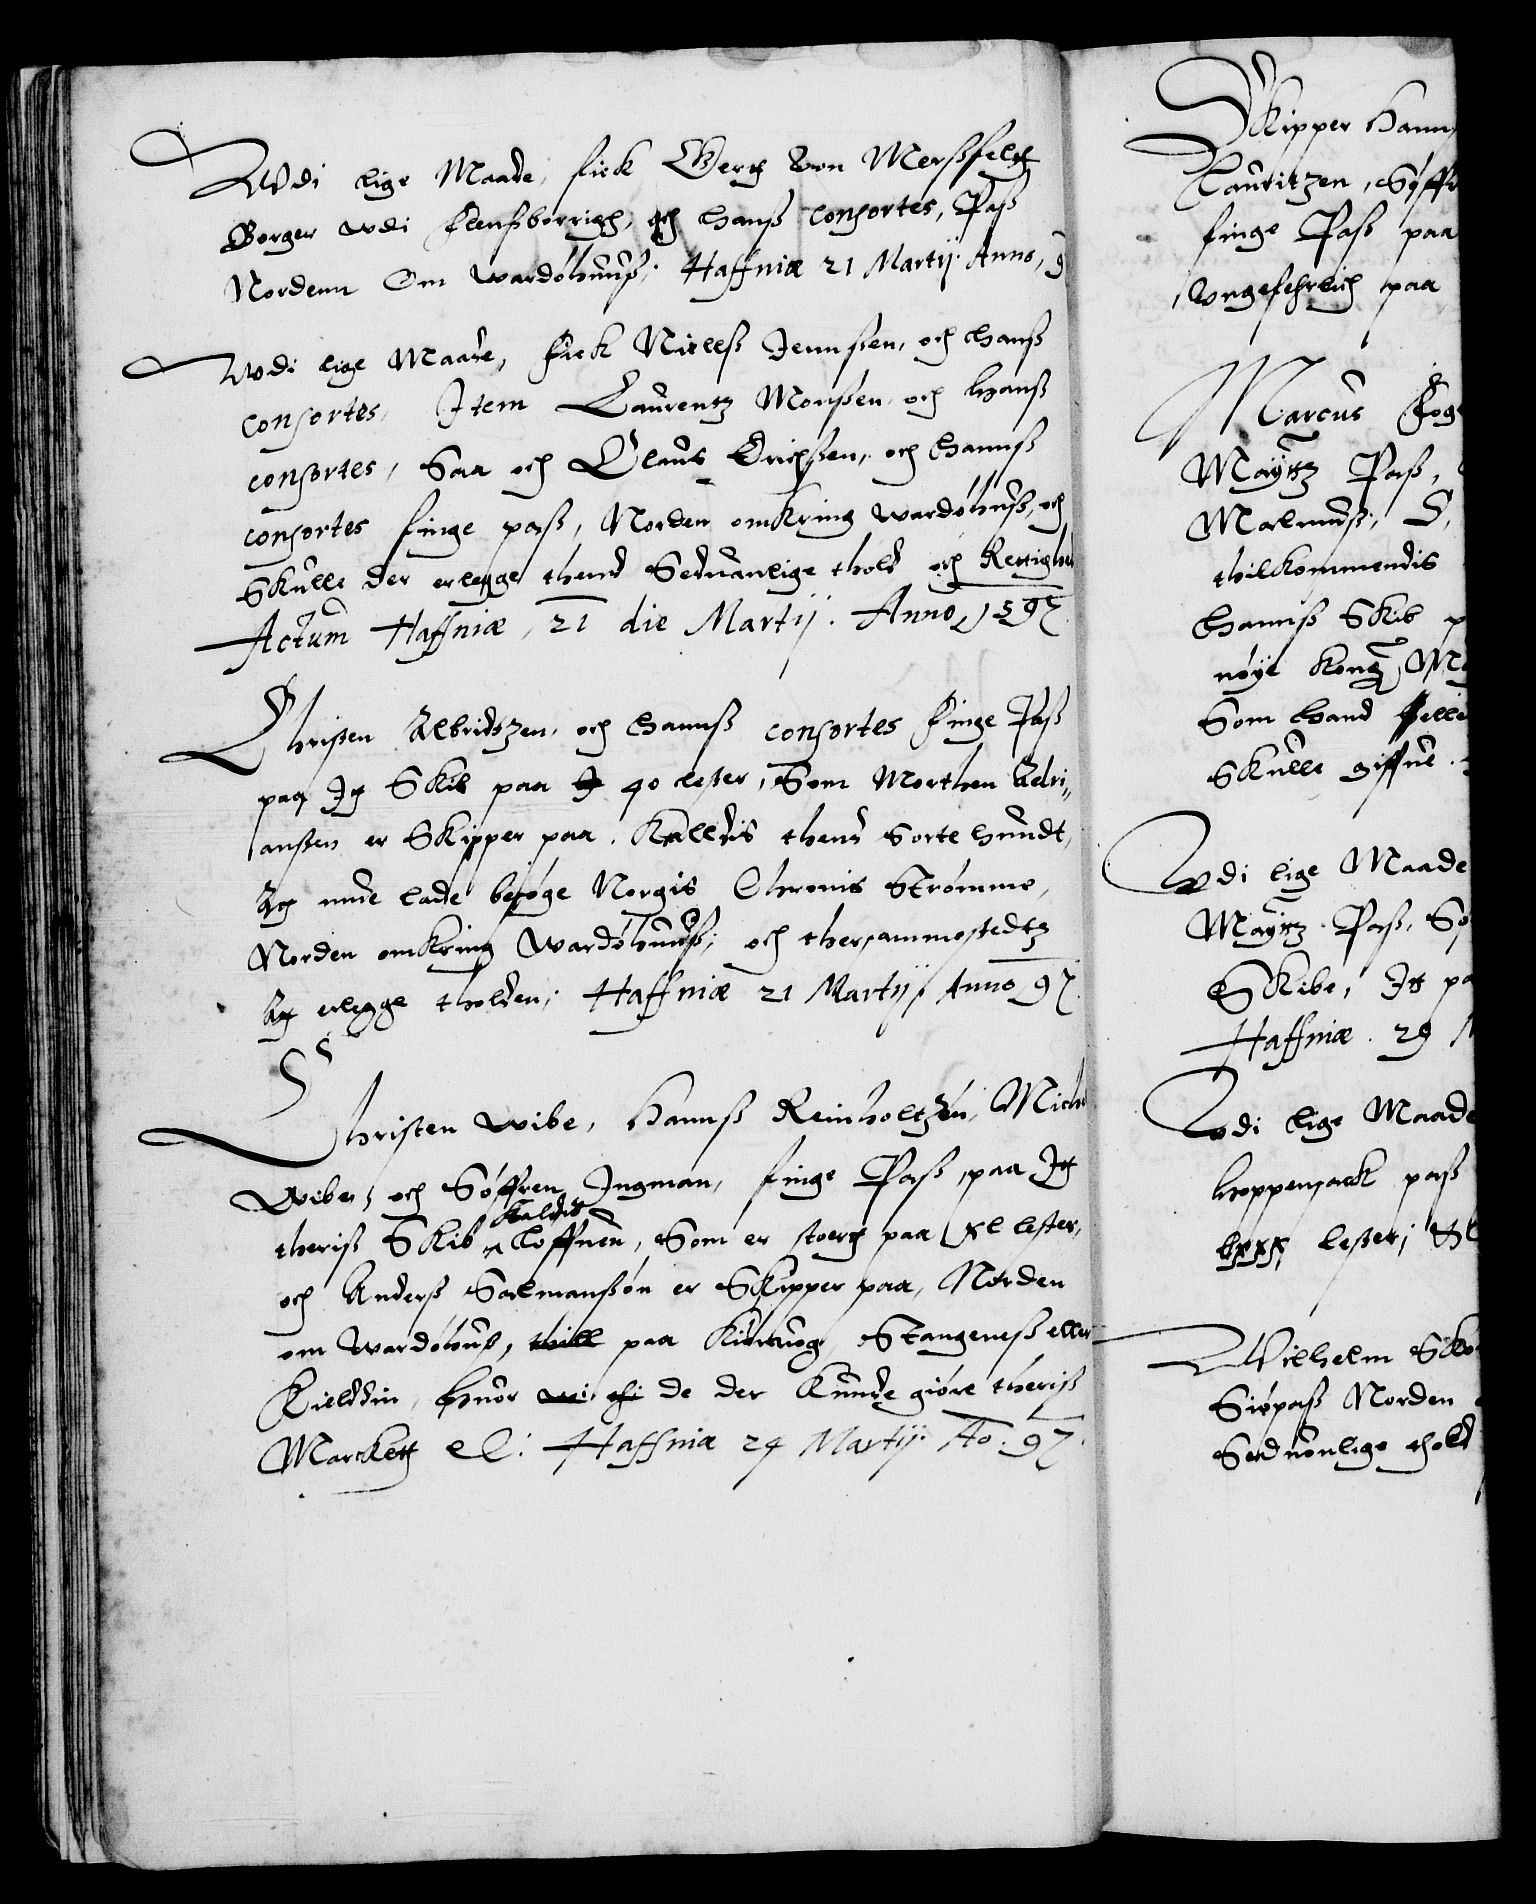 Wdi lige Maade, fick Gertz von Merssfeltz
Borger wdi Flenssborrigh, och hans consortes, Pass
Nordenn Om wardöhuuss; Haffniæ 21 Martij Anno, 9
Wdi lige Maade, fick Nielss Jennssen, och hans
consortes, Item Laurentz Monssen, och hans
consortes, Saa och Claus Erichssen, och hanns
consortes finge pass, Norden omkring wardöhuss, och
Skulle der erlegge thend Seduanlige thold och Rettighed
Actum Haffniæ, 21 die Martij. Anno, 1597
Christen Albridtzen, och hanns consortes finge Pass
paa It Skib paa 40 lester, Som Morthen Adri,,
anssen er Skipper paa. Kalldis thend Sorte hundt,
At mue lade besöge Norgis Chronis Strömme,
Norden omkring wardöhuuss; och thersammestedtz
At erlegge tholden; Haffniæ 21 Martij, Anno 97
Christen wibe, Hanns Reinholtzön, Michel
Wibe, och Söffren Ingman, finge Pass, paa It
kaldis
theris Skib Löffuen, Som er stoertz paa xl lester,
och Anderss Salmanssön er Skipper paa, Norden
om wardöhuss, thill paa Stangeness eller
Kieldin, huor de der Kunde giöre theriss
Marckett etc: Haffniæ 24 Martij. Ao. 97.
Skipper Hanns
Lauritzen, Söff
finge Pass paa
vngefehrlich paa
Marcus Fog
Maytz Pass,
Malmuss,
thilkommendis
Hanniss Skib p
nöye Kong: M
Som hand
Skulle giffue
Wdi lige Maade
Maytz. Pass, Sö
Skibe, It pa
Haffniæ. 29 M
Wdi lige Maade
hoppensack pass
lxxx lester;
Wilhelm Sko
Siöpass Norden
Seduonlige thold